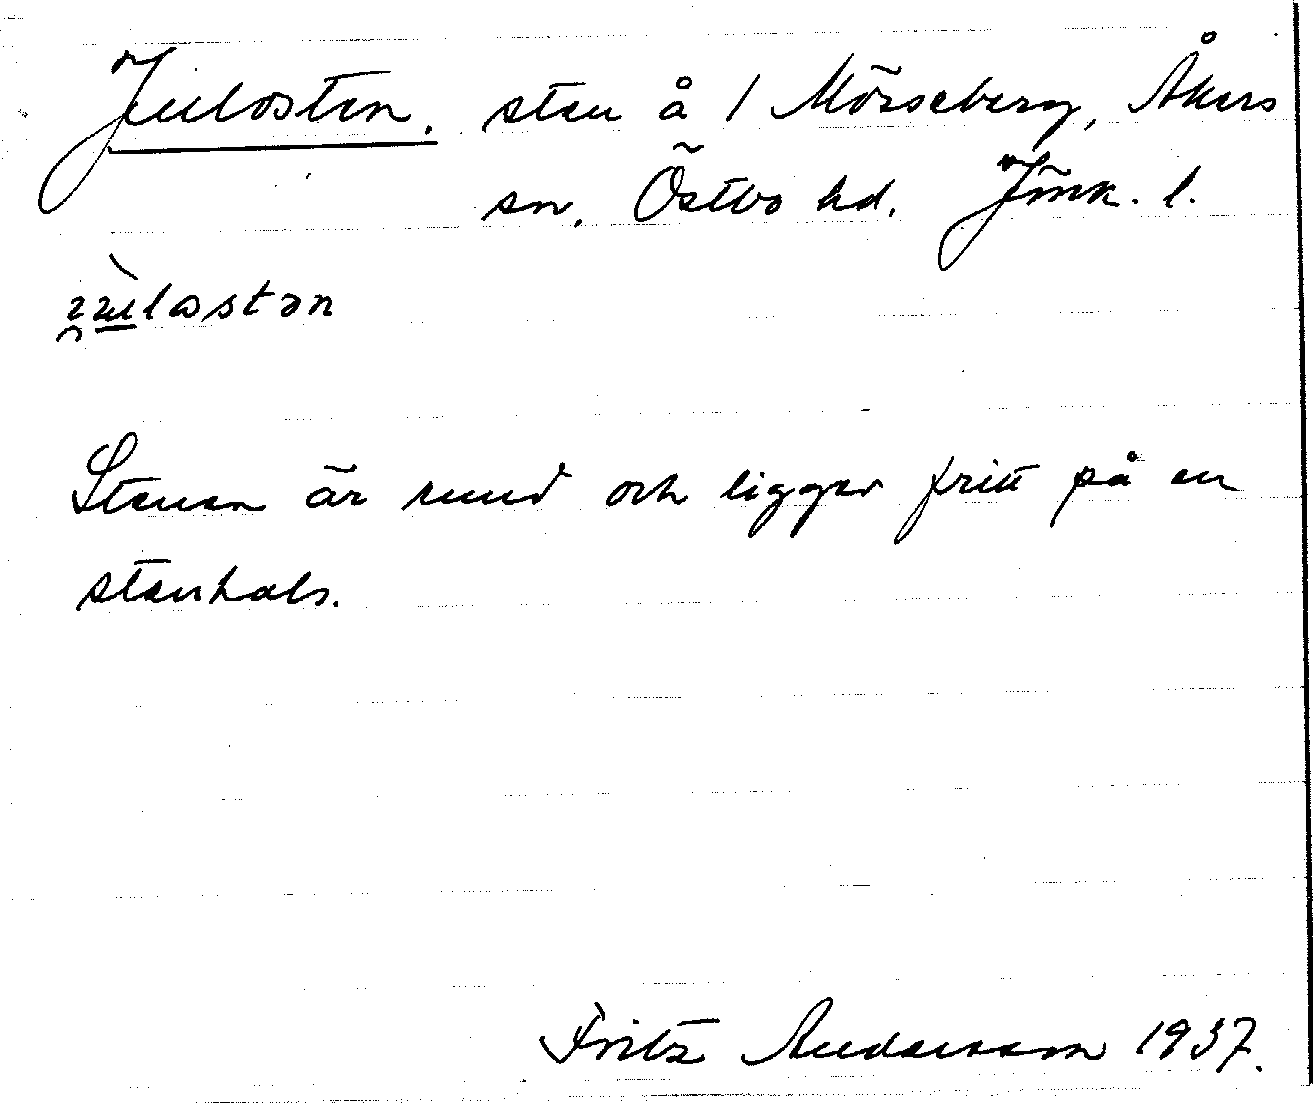 Julosten. sten å 1 Mörseberg, Åkers
sn. Östbo hd. Jönk. l.
i̯ùlostən
Stenen är rund och ligger fritt på en
stenhals.
Fritz Andersson 1937.